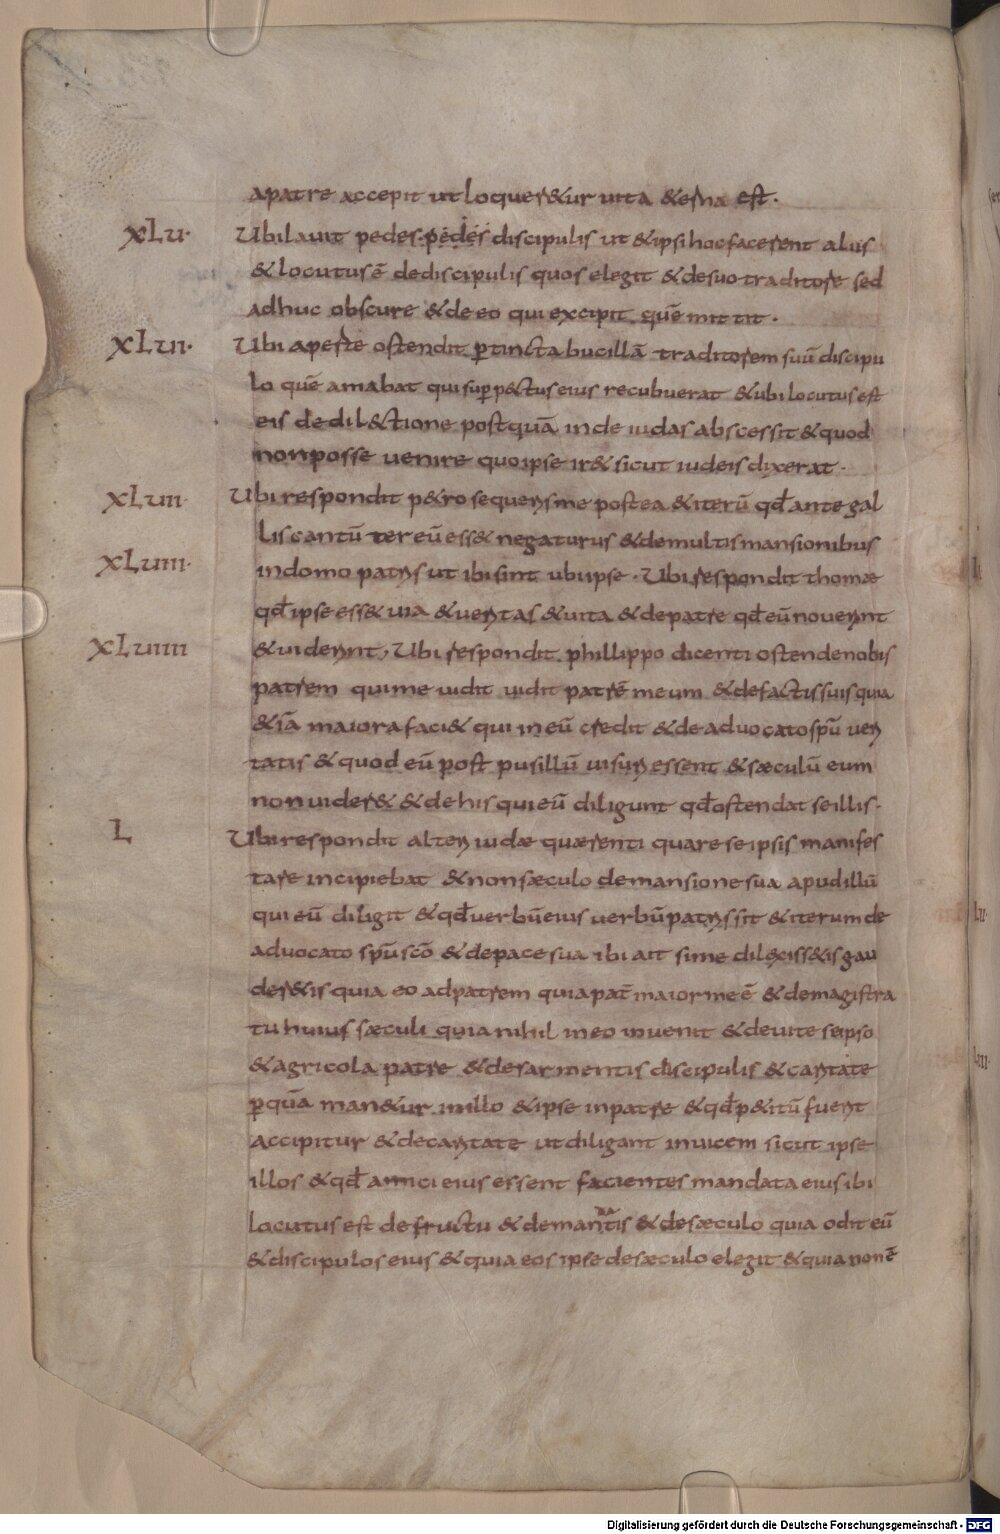 apatre accepit ut loquer&ur uita &erna est.
XLu· Ubi lauit pedes pedes discipulis ut &ipsi hoc facerent aliis
& locutus ē dediscipulis quos elegit &desuo traditore sed
adhuc obscure &de eo qui excipit quē mittit.
XLui· Ubi aperte ostendit ptincta bucillā traditorem suū discipu
lo quē amabat qui sup pectus eius recubuerat &ubi locutus est
eis de dil&tione postquā inde iudas abscessit &quod
non posse uenire quo ipse ir& sicut iudeis dixerat.
XLuii· Ubi respondit p&ro sequeris me postea &iterū qđ ante gal
lis cantū ter eū ess& negaturus &demultis mansionibus
XLuiii· indomo patris ut ibi sint ubi ipse · Ubi respondit thomæ
qđ ipse ess& uia &ueritas &uita &depatre qđ eū nouerint
XLuiiii &uiderint, Ubi respondit phillippo dicenti ostendenobis
patrem qui me uidit uidit patrē meum &defactis suis quia
&iā maiora faci& qui in eū credit &de aduocato spū ueri
tatis &quod eū post pusillū uisuri essent &sæculū eum
non uider& &de his qui eū diligunt qđ ostendat se illis.
L Ubi respondit alteri iudæ quærenti quare se ipsis manifes
tare incipiebat &non sæculo demansione sua apud illū
qui eū diligit &qđ uerbū eius uerbū patris sit &iterum de
aduocato spū scō &depace sua ibi ait si me dilexiss&is gau
der&is quia eo ad patrem quia pat̄ maior me ē &demagistra
tu huius sæculi quia nihil in eo inuenit &deuite seipso
&agricola patre &desarmentis discipulis &caritate
pquā man&ur in illo &ipse inpatre &qđ p&itū fuerit
accipitur &decaritate ut diligant inuicem sicut ipse
illos &qđ amici eius essent facientes mandata eius ibi
locutus est de fructu &demandatis &desæculo quia odit eū
&discipulos eius &quia eos ipse desæculo elegit &quia non ē
Digitalisierung gefördert durch die Deutsche Forschungsgemeinschaft - DFG